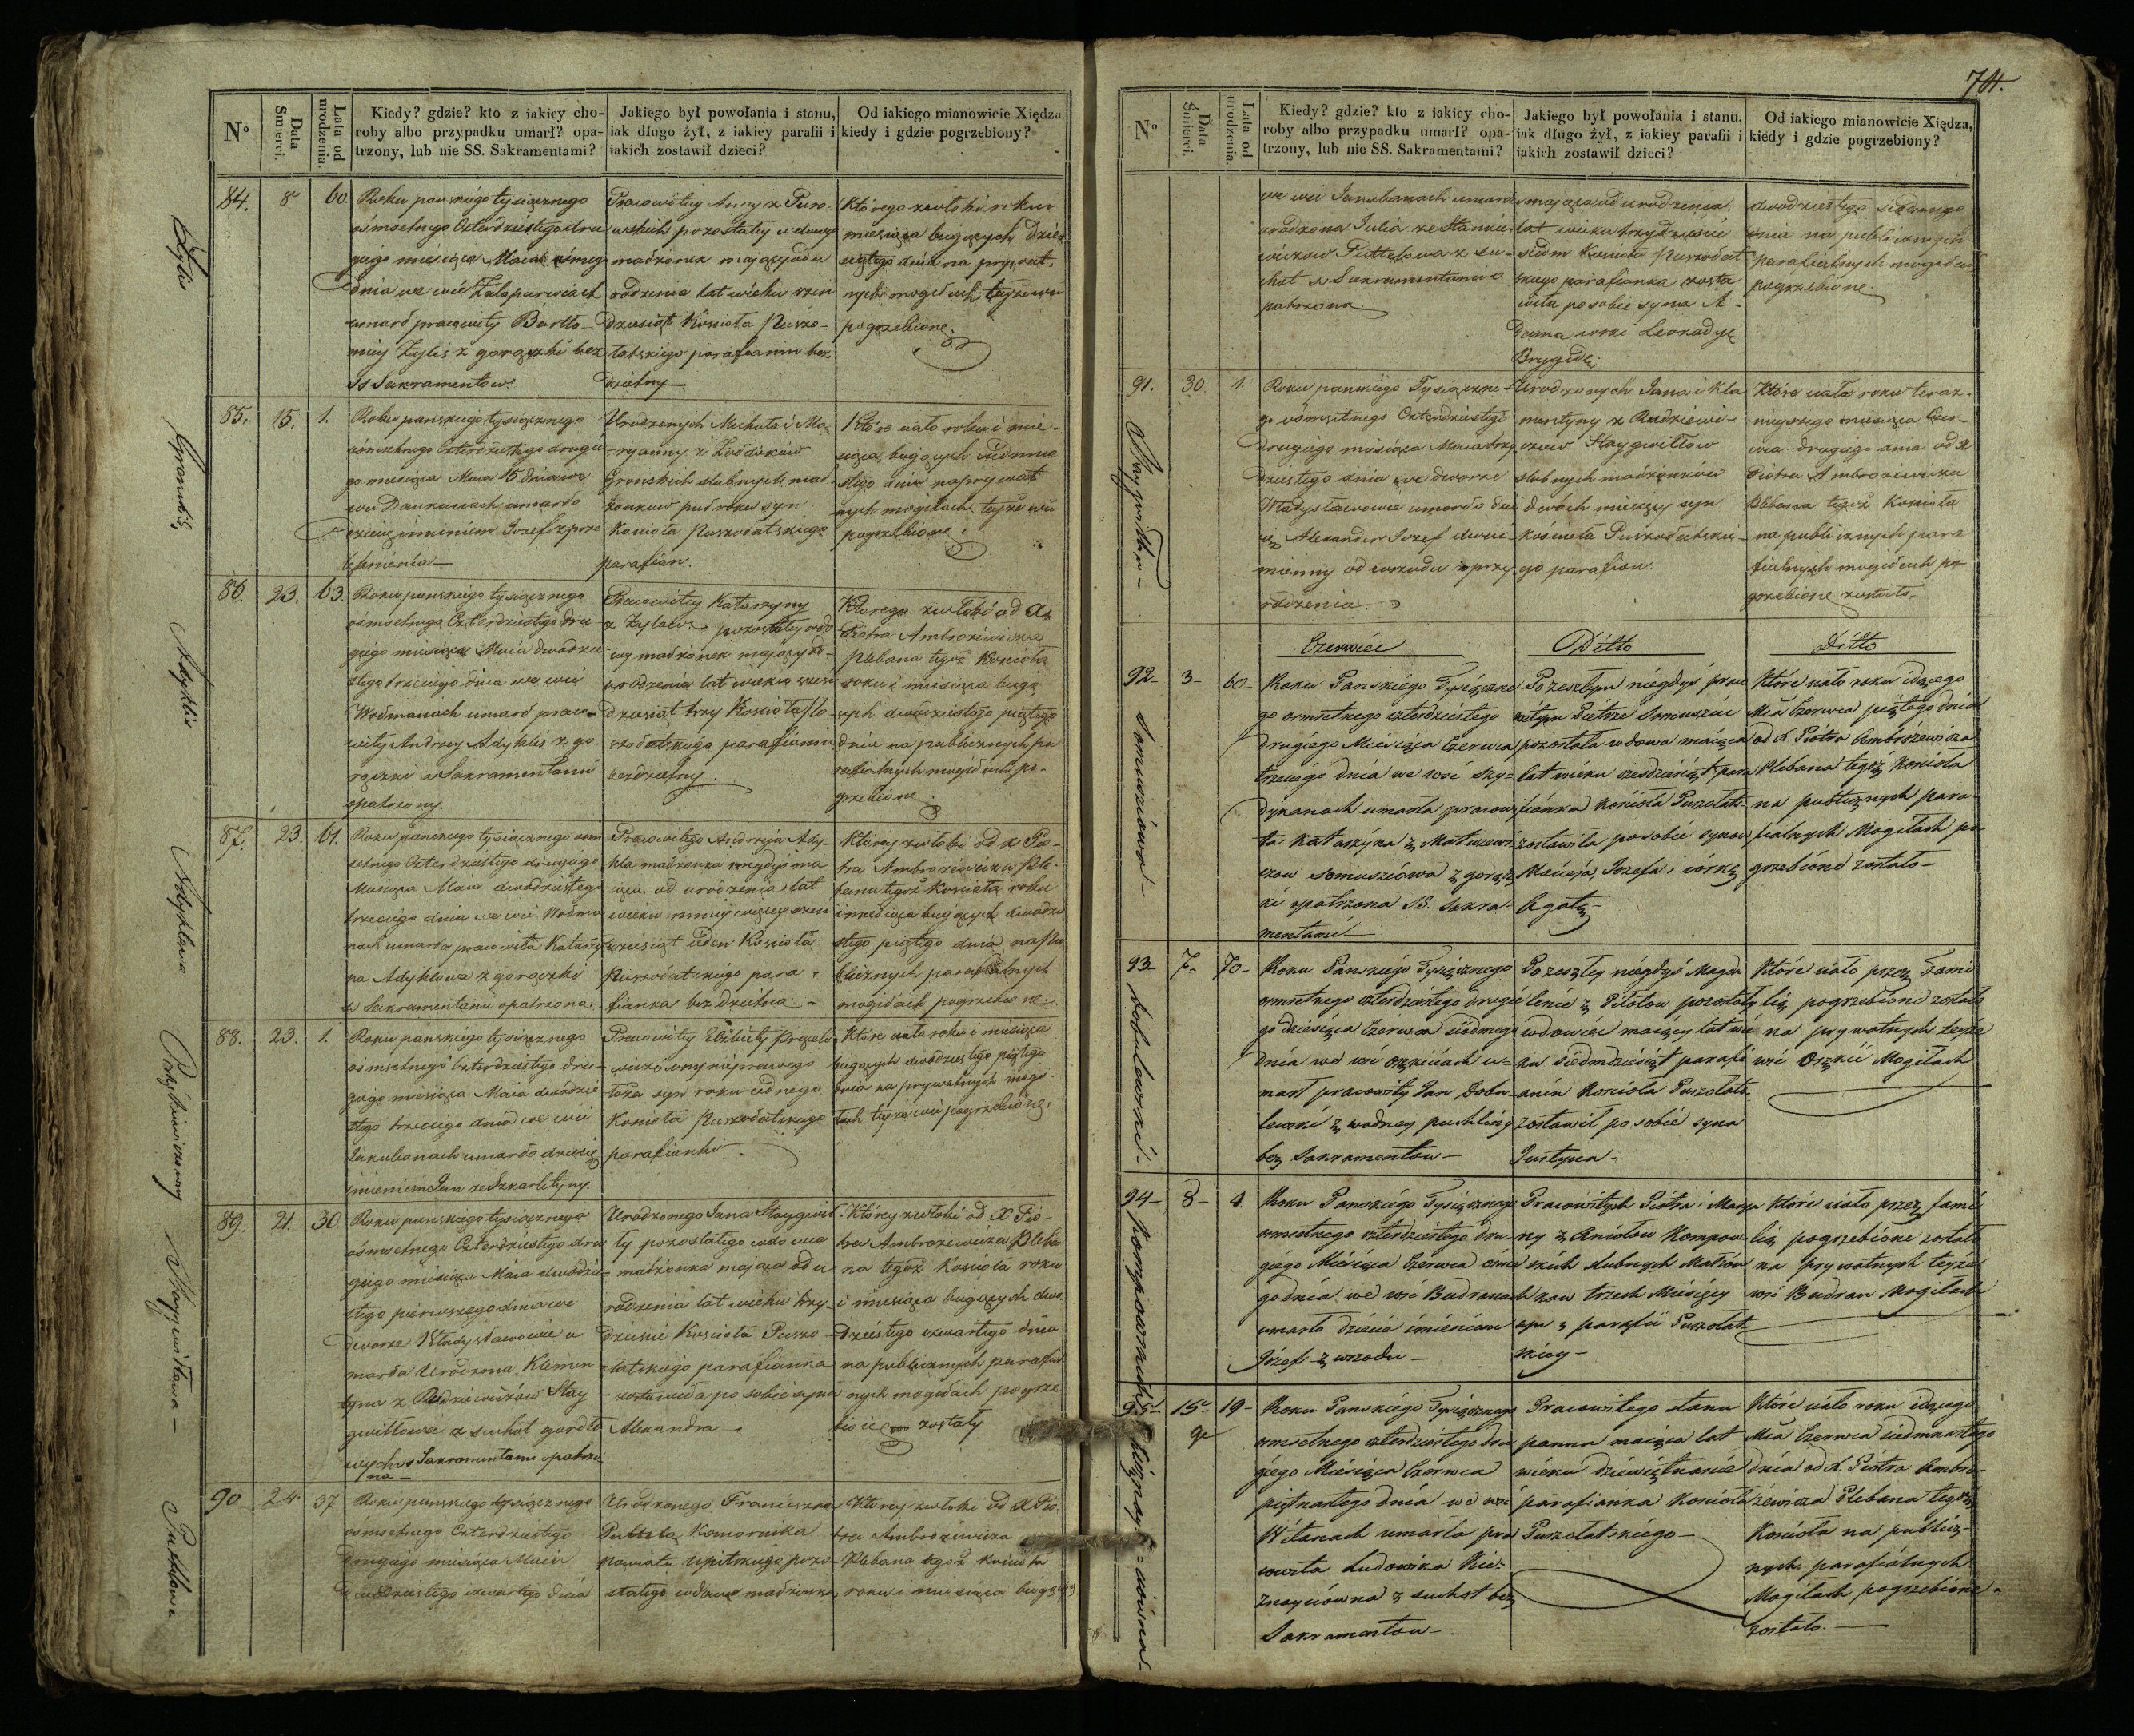 N°
Data Śmierci.
Lata od urodzenia.
Kiedy? gdzie? kto z iakiey cho-
roby albo przypadku umarł? opa-
trzony, lub nie SS. Sakramentami?
Jakiego był powołania i stanu,
iak długo żył, z iakiey parafii i
iakich zostawił dzieci?
Od iakiego mianowicie Xiędza,
kiedy i gdzie pogrzebiony?
84.
8
60.
Roku pańskiego tysiącznego
ośmsetnego Czterdziestego dru
giego miesiąca Maia ósmego
dnia we wsi
umarł pracowity Bartło-
miey Zylis z gorączki bez
Ss Sakramentow.
Pracowitey Anny z
pozostały wdowiec
małżonek mający od u
rodzenia lat wieku sześć
dziesiąt Kościoła Puszo-
łatskiego parafianin bez
dzietny
Którego zwłoki roku i
miesiąca bieżących dzie-
siątego dnia na prywat-
nych mogiłach teyże wsi
pogrzebione.
85.
15.
1.
Roku pańskiego tysiącznego
ośmsetnego Czterdziestego drugie
go miesiąca Maia 15 dnia we
wsi umarło
dziecie imieniem Jozef z prze
Urodzonych Michała i Ma
ryanny z
ślubnych mał
żonkow pół roku syn
Kościoła Puszołatskiego
parafian.
Które ciało roku i mie-
siąca bieżących siedmna
stego dnia na prywat
nych mogiłach teyże wsi
pogrzebione.
86.
23.
63.
Roku pańskiego tysiącznego
ośmsetnego Czterdziestego dru
giego miesiąca Maia dwudzie
stego trzeciego dnia we wsi
Wodmanach umarł praco-
wity Andrzey Adyklis z go-
rączki Ss Sakramentami
opatrzony.
Pracowitey Katarzyny
pozostały wdo
wy małżonek mający od
urodzenia lat wieku sześć
dziesiąt trzy Kościoła Pu
szołatskiego parafianin
bezdzietny.
Którego zwłoki od X
Piotra Ambroziewicza
Plebana tegoż Kościoła
roku i miesiąca bieżą
cych dwudziestego piątego
dnia na publicznych pa
rafialnych mogiłach po-
grzebione
87.
23.
61.
Roku pańskiego tysiącznego ośm
setnego Czterdziestego drugiego
Miesiąca Maia dwudziestego
trzeciego dnia we wsi Wodma
nach umarła pracowita Katarzy
na Adyklowa z gorączki
Ss Sakramentami opatrzona.
Pracowitego Andrzeja Ady-
kla małżonka niegdyś ma
iąca od urodzenia lat
wieku mniey więcey sześć
dziesiąt ieden Kościoła
Puszołatskiego para-
fianka bezdzietna
Którey zwłoki od X Pio-
tra Ambroziewicza Ple-
bana tegoż Kościoła roku
i miesiąca bieżących dwudzie
stego piątego dnia na pu
blicznych parafialnych
mogiłach pogrzebione.
88.
23.
1.
Roku pańskiego tysiącznego
ośmsetnego Czterdziestego dru-
giego miesiąca Maia dwudzie
stego trzeciego dnia we wsi
Jakubanach umarło dziecię
imieniem Jan ze Szkarlatyny.
Pracowitey Elżbiety
nieprawego
łoża syn roku iednego
Kościoła Puszołatskiego
parafianki.
Które ciało roku i miesiąca
bieżących dwudziestego piątego
dnia na prywatnych mogi
łach teyże wsi pogrzebione.
89.
21.
30
Roku pańskiego tysiącznego
ośmsetnego Czterdziestego dru
giego miesiąca Maia dwudzie
stego pierwszego dnia we
dworze Władysławowie u
marła Urodzona Klemen
tyna z Radziewiczów Stay
gwiłłowa z suchot gardło
wych Ss Sakramentami opatrzo
na
Urodzonego Jana Staygwił
ły pozostałego wdowca
małżonka maiąca od u
rodzenia lat wieku trzy
dzieście Kościoła Puszo
łatskiego parafianka
zostawiła po sobie syna
Alexandra
Którey zwłoki od X Pio-
tra Ambroziewicza Pleba
na tegoż Kościoła roku
i miesiąca bieżących dwu
dziestego czwartego dnia
na publicznych parafial
nych mogiłach pogrze
bione zostały
90
24
37
Roku pańskiego tysiącznego
ośmsetnego Czterdziestego
Drugiego miesiąca Maia
dwudziestego czwartego dnia
Urodzonego Franciszka
Puttela Komornika
powiatu Upitskiego pozo-
stałego wdowca małżonka
Którey zwłoki od X Pio-
tra Ambroziewicza
Plebana tegoż kościoła
roku i miesiąca bieżących
Zylis
Adyklis
Adyklowa
Staygwiłłowa
Puttelowa
N°
Data Śmierci.
Lata od urodzenia.
Kiedy? gdzie? kto z iakiey cho-
roby albo przypadku umarł? opa-
trzony, lub nie SS. Sakramentami?
Jakiego był powołania i stanu,
iak długo żył, z iakiey parafii i
iakich zostawił dzieci?
Od iakiego mianowicie Xiędza,
kiedy i gdzie pogrzebiony?
we wsi umarła
urodzona Julia ze Stankie
wiczow Puttelowa z su-
chot Ss Sakramentami o
patrzona
maiąca od urodzenia
lat wieku trzydzieście
siedm Kościoła Puszołat
skiego parafianka zosta
wiła po sobie syna A-
dama corki Leokadyę
Brygidę.
dwudziestego siodmego
dnia na publicznych
parafialnych mogiłach
pogrzebione.
91.
30.
1.
Roku pańskiego Tysiączne
go ośmsetnego Czterdziestego
drugiego miesiąca Maia trzy
dziestego dnia we dworze
Władysławowie umarło dzie
cię Alexander Jozef dwui
mienny od wrzodu z przy
rodzenia.
Urodzonych Jana i Kle
mentyny z Radziewi-
czow Staygwiłłow
ślubnych małżonków
dwóch miesięcy syn
kościoła Puszołatskie-
go parafian.
Które ciało roku teraz-
nieyszego miesiąca Czer-
wca drugiego dnia od X
Piotra Ambroziewicza
Plebana tegoż Kościoła
na publicznych para
fialnych mogiłach po
grzebione zostało.
Staygwiłło
Czerwiec
Ditto
Ditto
92
3
60
Roku Pańskiego Tysiączne
go ośmsetnego czterdziestego
drugiego Miesiąca Czerwca
trzeciego dnia we wsi Szy-
dykanach umarła pracowi
ta Katarzyna z Matuzewi
czow Somuszíowa z gorącz
ki opatrzona SS. Sakra-
mentami
Po zeszłym niegdyś praco
witym Pietrze Somuszíu
pozostała wdowa maiąca
lat wieku sześdziesiąt para
fianka kościoła Puszołats.
zostawiła po sobie synow
Macieja, Jozefa i córkę
Agatę
Które ciało roku idącego
Mca Czerwca piątego dnia
od X. Piotra Ambrożewicza
Plebana tegoż Kościoła
na publicznych para-
fialnych Mogiłach po
grzebione zostało
93
7
70
Roku Pańskiego Tysiącznego
ośmsetnego czterdziestego drugie
go Miesiąca Czerwca siódmego
dnia we wsi u-
marł pracowity Jan Dobu
lewski z wodney puchliny
bez Sakramentow
Po zeszłey niegdyś Magda
lenie z pozostały
wdowiec maiący lat wie
ku siedmdziesiąt parafi
anin Kościoła Puszołats.
zostawił po sobie syna
Justyna
Które ciało przez Fami
lią pogrzebione zostało
na prywatnych teyże
wsi Mogiłach
94
8
Roku Pańskiego Tysiącznego
ośmsetnego czterdziestego dru-
giego Miesiąca Czerwca ósme
go dnia we wsi Budranach
umarło dziecie imieniem
Józef z wrzodu
Pracowitych Piotra i Marya
ny z Aniołow Kompow
skich ślubnych Małżon
kow trzech Miesięcy
syn z parafii Puszołat
skiey
Które ciało przez fami
lią pogrzebione zostało
na prywatnych teyże
wsi Budran Mogiłach
95
15
19
Roku Pańskiego Tysiącznego
ośmsetnego czterdziestego dru
giego Miesiąca Czerwca
piętnastego dnia we wsi
Witanach umarła pra
cowita Ludowika
z suchot bez
Sakramentow
Pracowitego stanu
panna maiąca lat
wieku dziewiętnaście
parafianka Kościoła
Puszołatskiego
Które ciało roku idącego
Mca Czerwca siedmnastego
dnia od X. Piotra Ambro
żewicza Plebana tegoż
Kościoła na publicz-
nych parafialnych
Mogiłach pogrzebione
zostało.